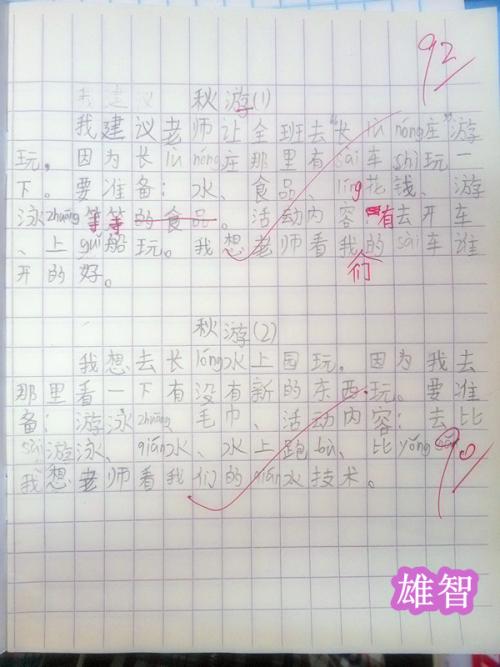 92
秋游(1)
我建议老师让全班去"长lù nóng庄"游
玩。因为长lù nóng庄那里有sài车shì玩一
下。要准备:水、食品、líng花钱、游
泳zhuāng等等的食品。活动内容有去开车
、上guǐ船玩。我想老师看我们的sài车谁
开的好。
秋游(2)
我想去长lóng水上园玩。因为我去
那里看一下有没有新的东西玩。要准
备:游泳zhuāng、毛巾、活动内容:去比
sài游泳、qiǎn水、水上跑bù、比yǒng
90
我想老师看我们的qiǎn水技术。
雄智